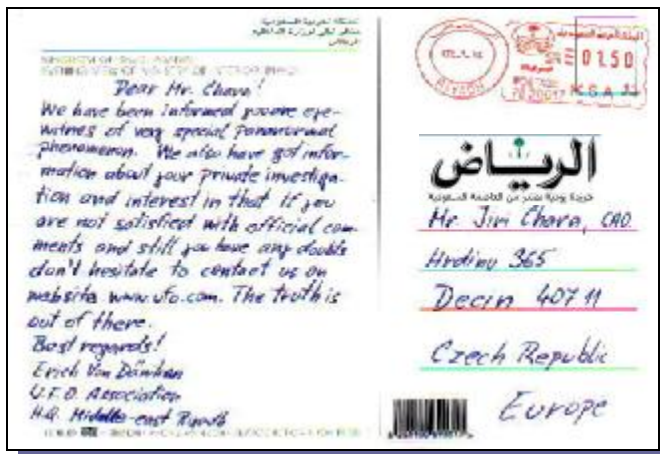 المملكة العربية السعودية
الرياض
KINGDOM OF SAUDI ARABIA
Dear Mr. Chara!
We have been informed you are eye-
witnes of very special Paranormal
phenomenon. We also have got infor-
mation about your private investiga-
tion and interest in that. If you
are not satisfied with official com-
ments and still you have any doubts
don't hesitate to contact us on
website www.ufo.com. The truth is
out of there.
Best regards!
Erich Von Däniken
U.F.O. Association
H.Q. Middle-east Riyadh
01.50
RIYADH
K.S.A
الرياض
جريدة يومية تصدر من العاصمة السعودية
Mr. Jiri Chara, CAO.
Hrdinu 365
Decin 407 11
Czech Republic
Europe